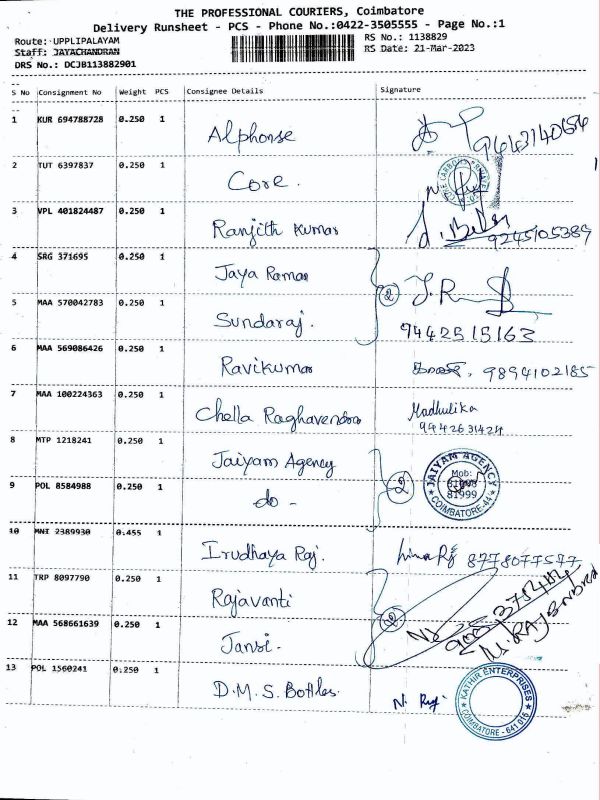 THE PROFESSIONAL COURIERS, Coimbatore
Delivery Runsheet - PCS - Phone No.:0422-3505555 - Page No.:1
Route: UPPLIPALAYAM
RS No.: 1138829
Staff: JAYACHANDRAN
RS Date: 21-Mar-2023
DRS No.: DCJB113882901
S No Consignment No Weight PCS Consignee Details Signature
1 KUR 694788728 0.250 1 Alphonse 9443140654
2 TUT 6397837 0.250 1 Core.
3 VPL 401824487 0.250 1 Ranjith Kumar 9245105389
4 SRG 371695 0.250 1 Jaya Raman
2 J.R
5 MAA 570042783 0.250 1 Sundaraj. 9442515163
6 MAA 569086426 0.250 1 Ravikumar 9894102185
7 MAA 100224363 0.250 1 Chella Raghavendra Madhulika
9442631424
8 MTP 1218241 0.250 1 Jaiyam Agency
JAIYAM AGENCY
Mob:
81999
COIMBATORE-44
2
9 POL 8584988 0.250 1 do -
10 MNI 2389930 0.455 1 Irudhaya Raj. 8778077577
11 TRP 8097790 0.250 1 Rajavanti
2
12 MAA 568661639 0.250 1 Jansi.
13 POL 1560241 0.250 1 D.M.S. Bottles.
KATHIR ENTERPRISES
COIMBATORE - 641 016